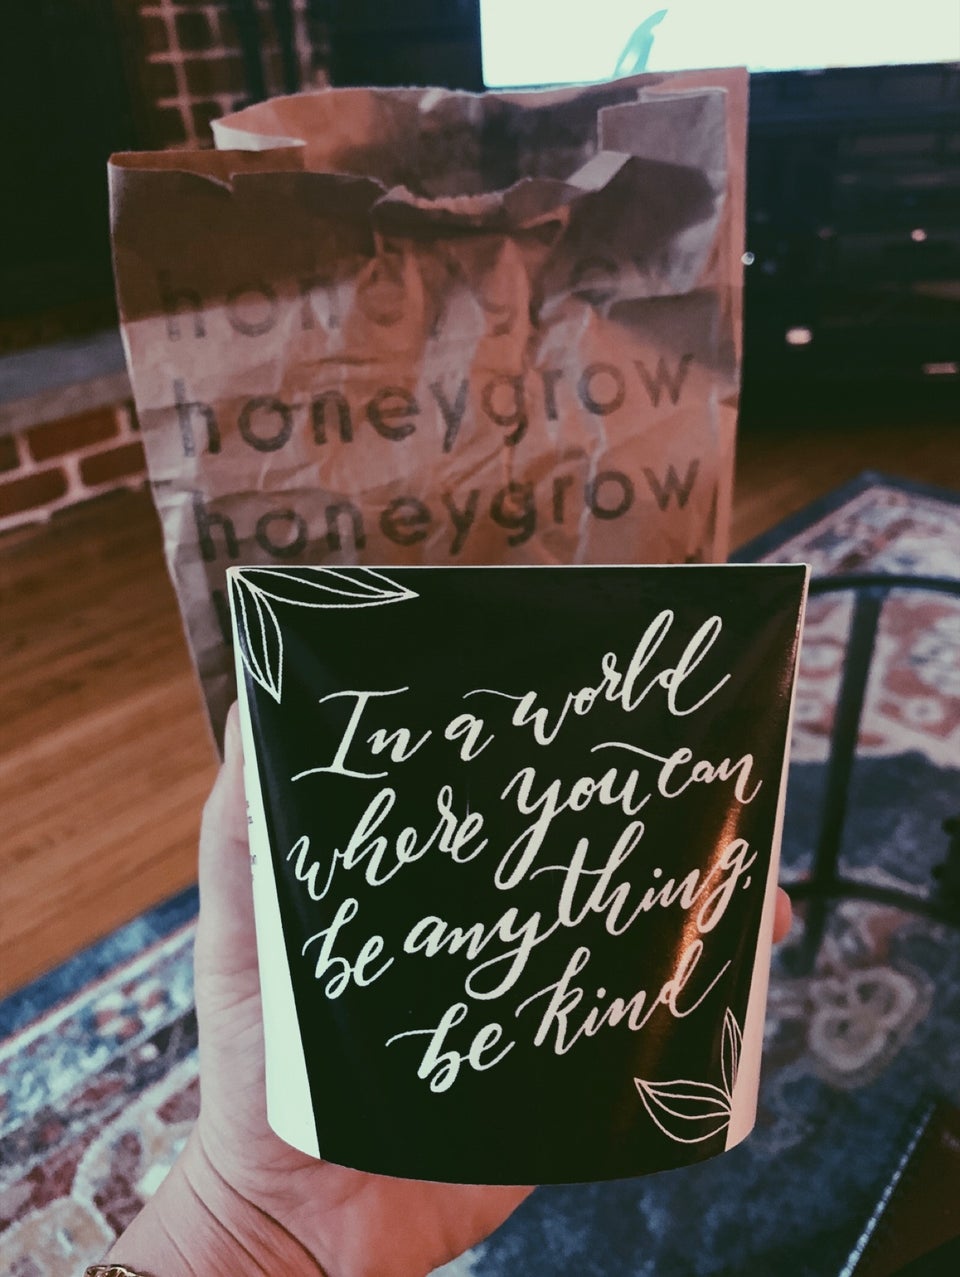 honeygrow
honeygrow
honeygrow
In a world
where you can
be anything,
be kind